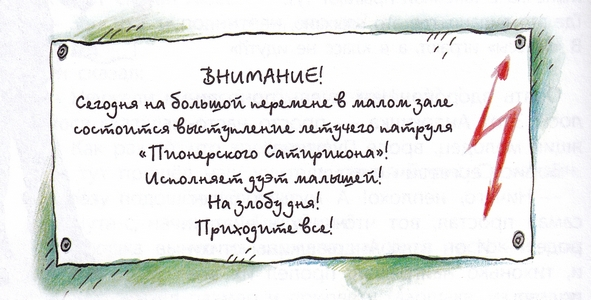 ВНИМАНИЕ!
Сегодня на большой перемене в малом зале
состоится выступление летучего патруля
«Пионерского Сатирикона»!
Исполняет дуэт малышей!
На злобу дня!
Приходите все!